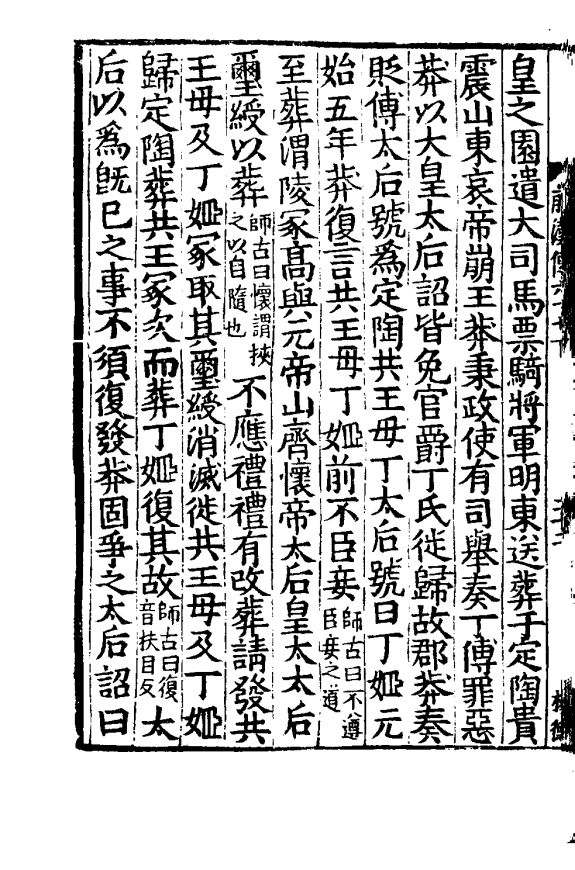 皇之園遣大司馬票騎將軍明東送葬于定陶貴
震山東哀帝崩王莽秉政使有司舉奏丁傅罪惡
莽以大皇太后詔皆免官爵丁氏徙歸故郡莽奏
貶傅太后號爲定陶共王母丁太后號曰丁姬元
始五年莽復言共王母丁姬前不臣妾師古曰不遵臣妾之道
至葬渭陵冢高與元帝山齊懷帝太后皇太太后
璽綬以葬師古曰懷謂挾之以自隨也不應禮禮有改葬請發共
王母及丁姬冢取其璽綬消滅徙共王母及丁姬
歸定陶葬共王冢次而葬丁姬復其故師古曰復音扶目反太
后以爲旣已之事不須復發莽固爭之太后詔曰